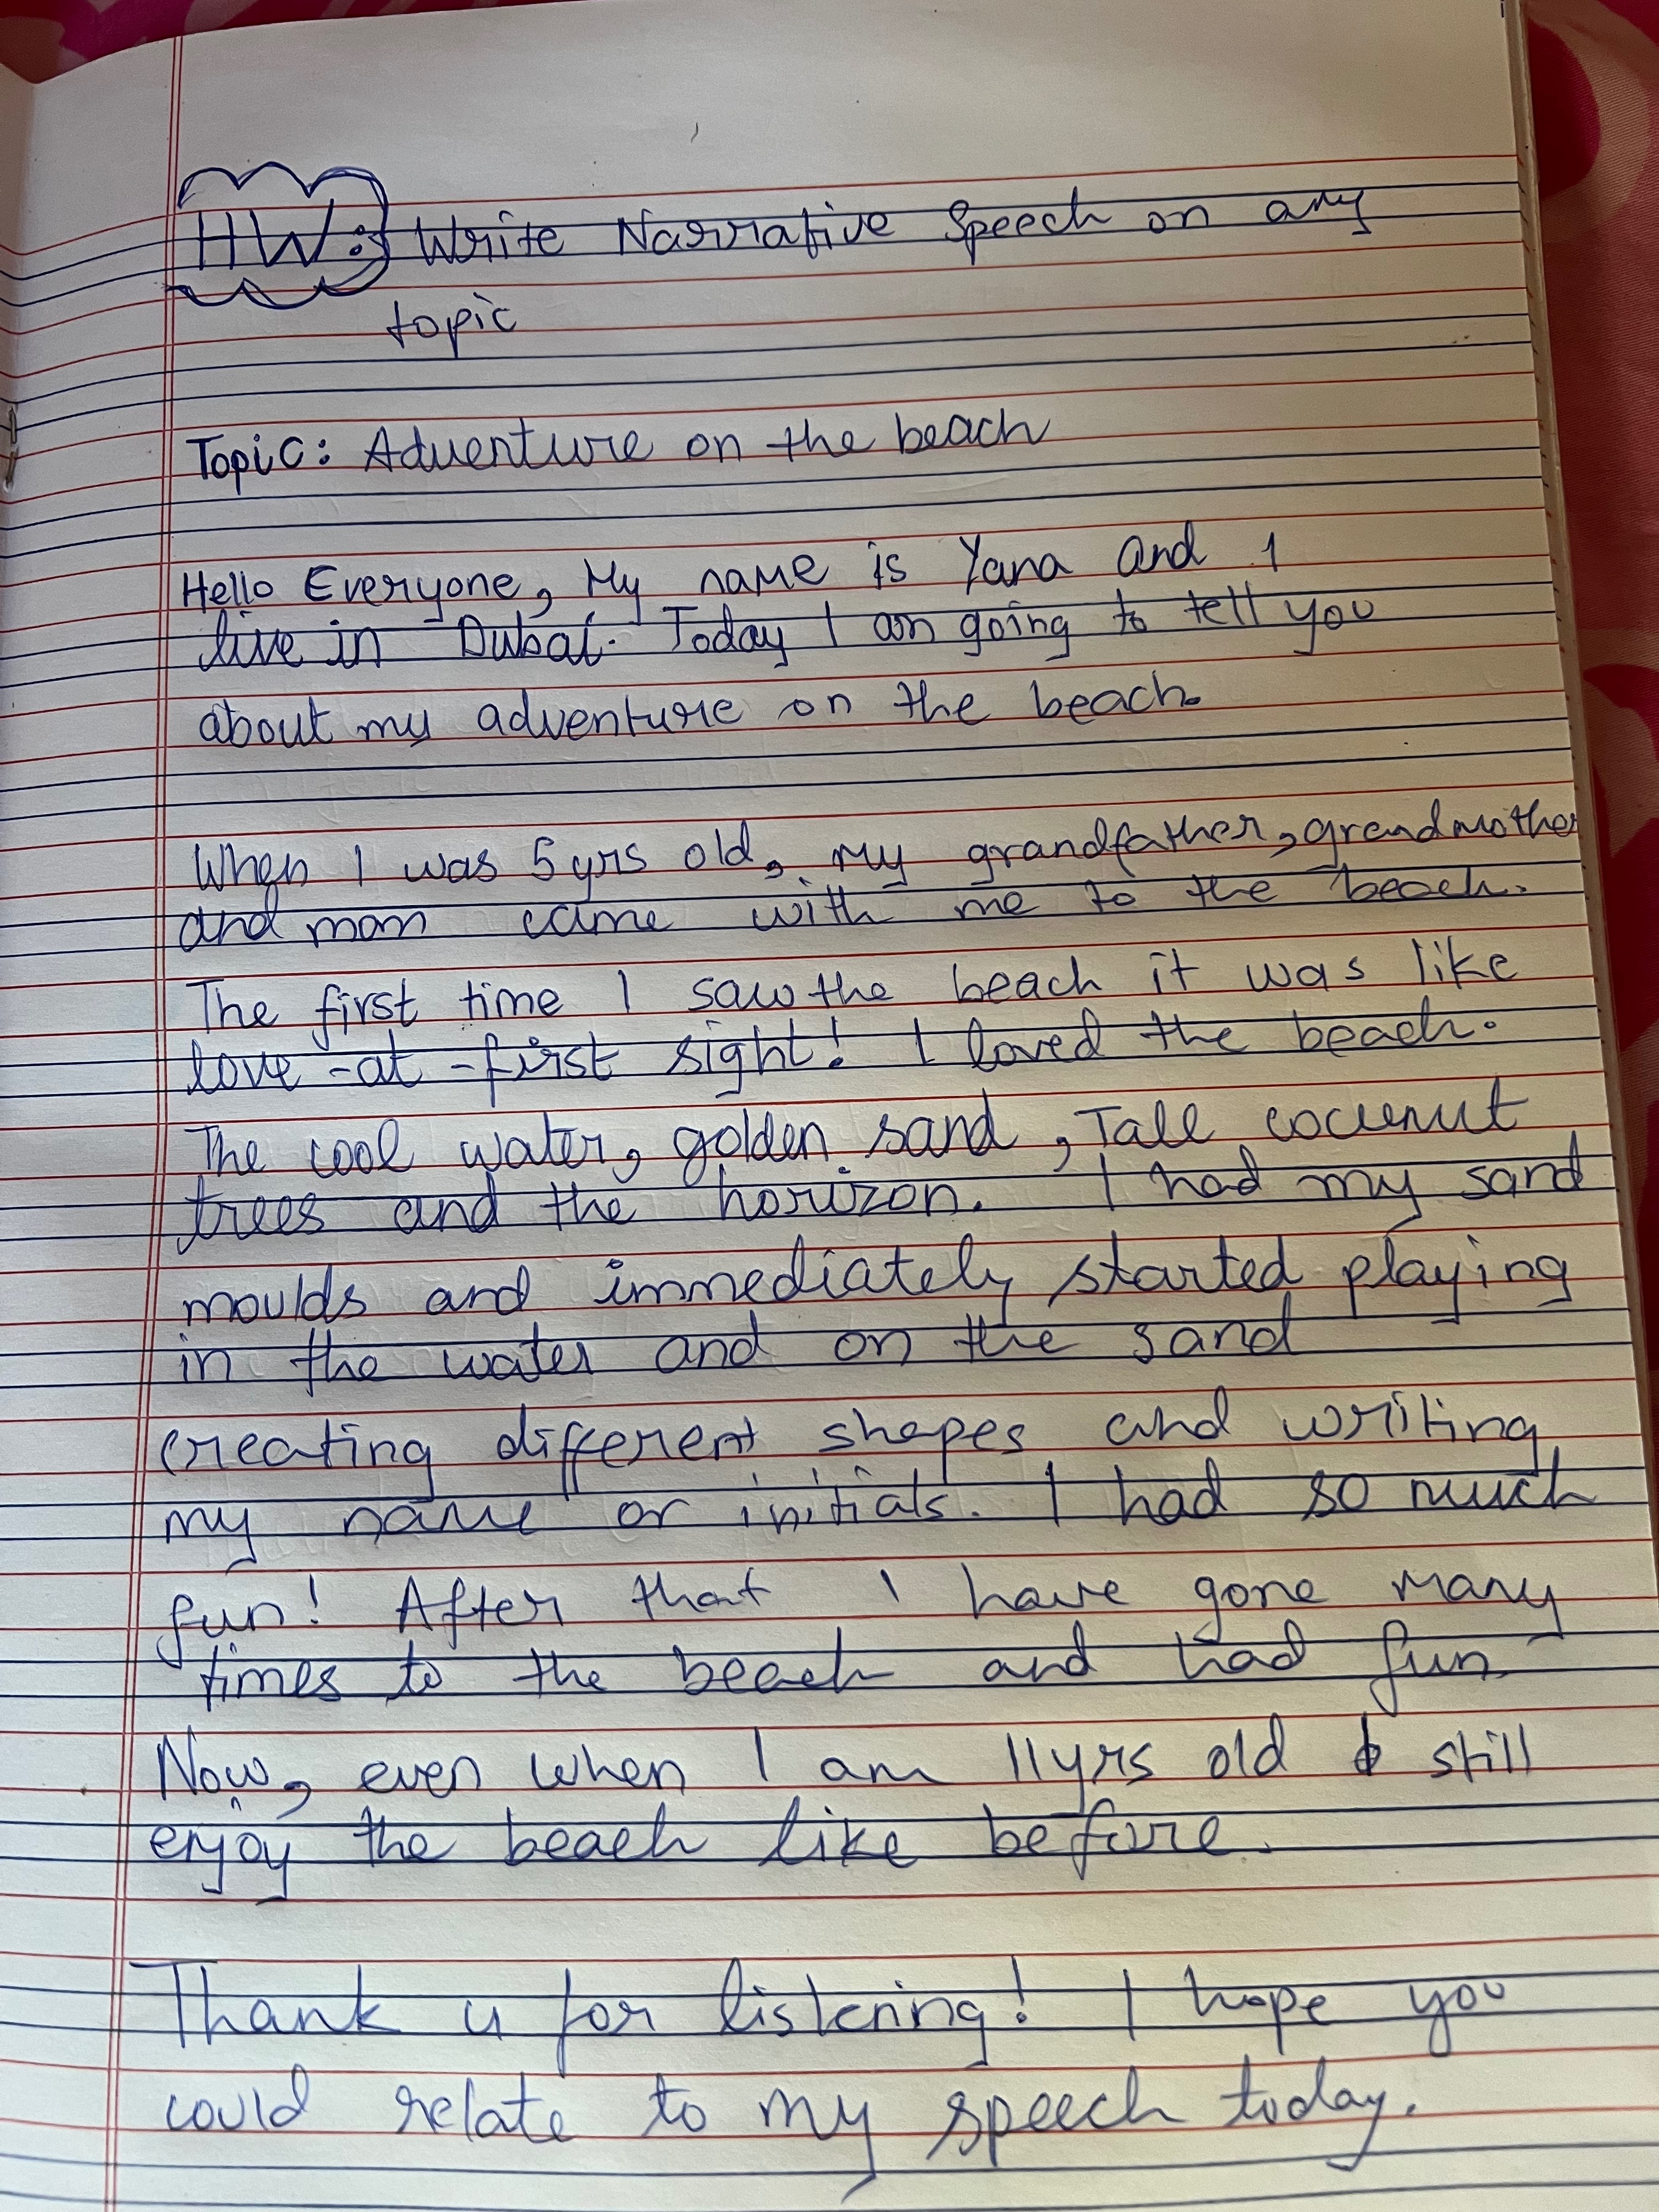 HW: Write Narrative Speech on any
topic
Topic: Adventure on the beach
Hello Everyone, My name is Yana And I
live in Dubai. Today I am going to tell you
about my adventure on the beach.
When I was 5 yrs old, my grandfather, grandmother
and mom came with me to the beach.
The first time I saw the beach it was like
love-at-first sight! I loved the beach.
The cool water, golden sand, Tall cocunut
trees and the horizon. I had my sand
moulds and immediately started playing
in the water and on the sand
creating different shapes and writing
my name or initials. I had so much
fun! After that I have gone many
times to the beach and had fun.
Now, even when I am 11yrs old I still
enjoy the beach like before.
Thank u for listening! I hope you
could relate to my speech today.